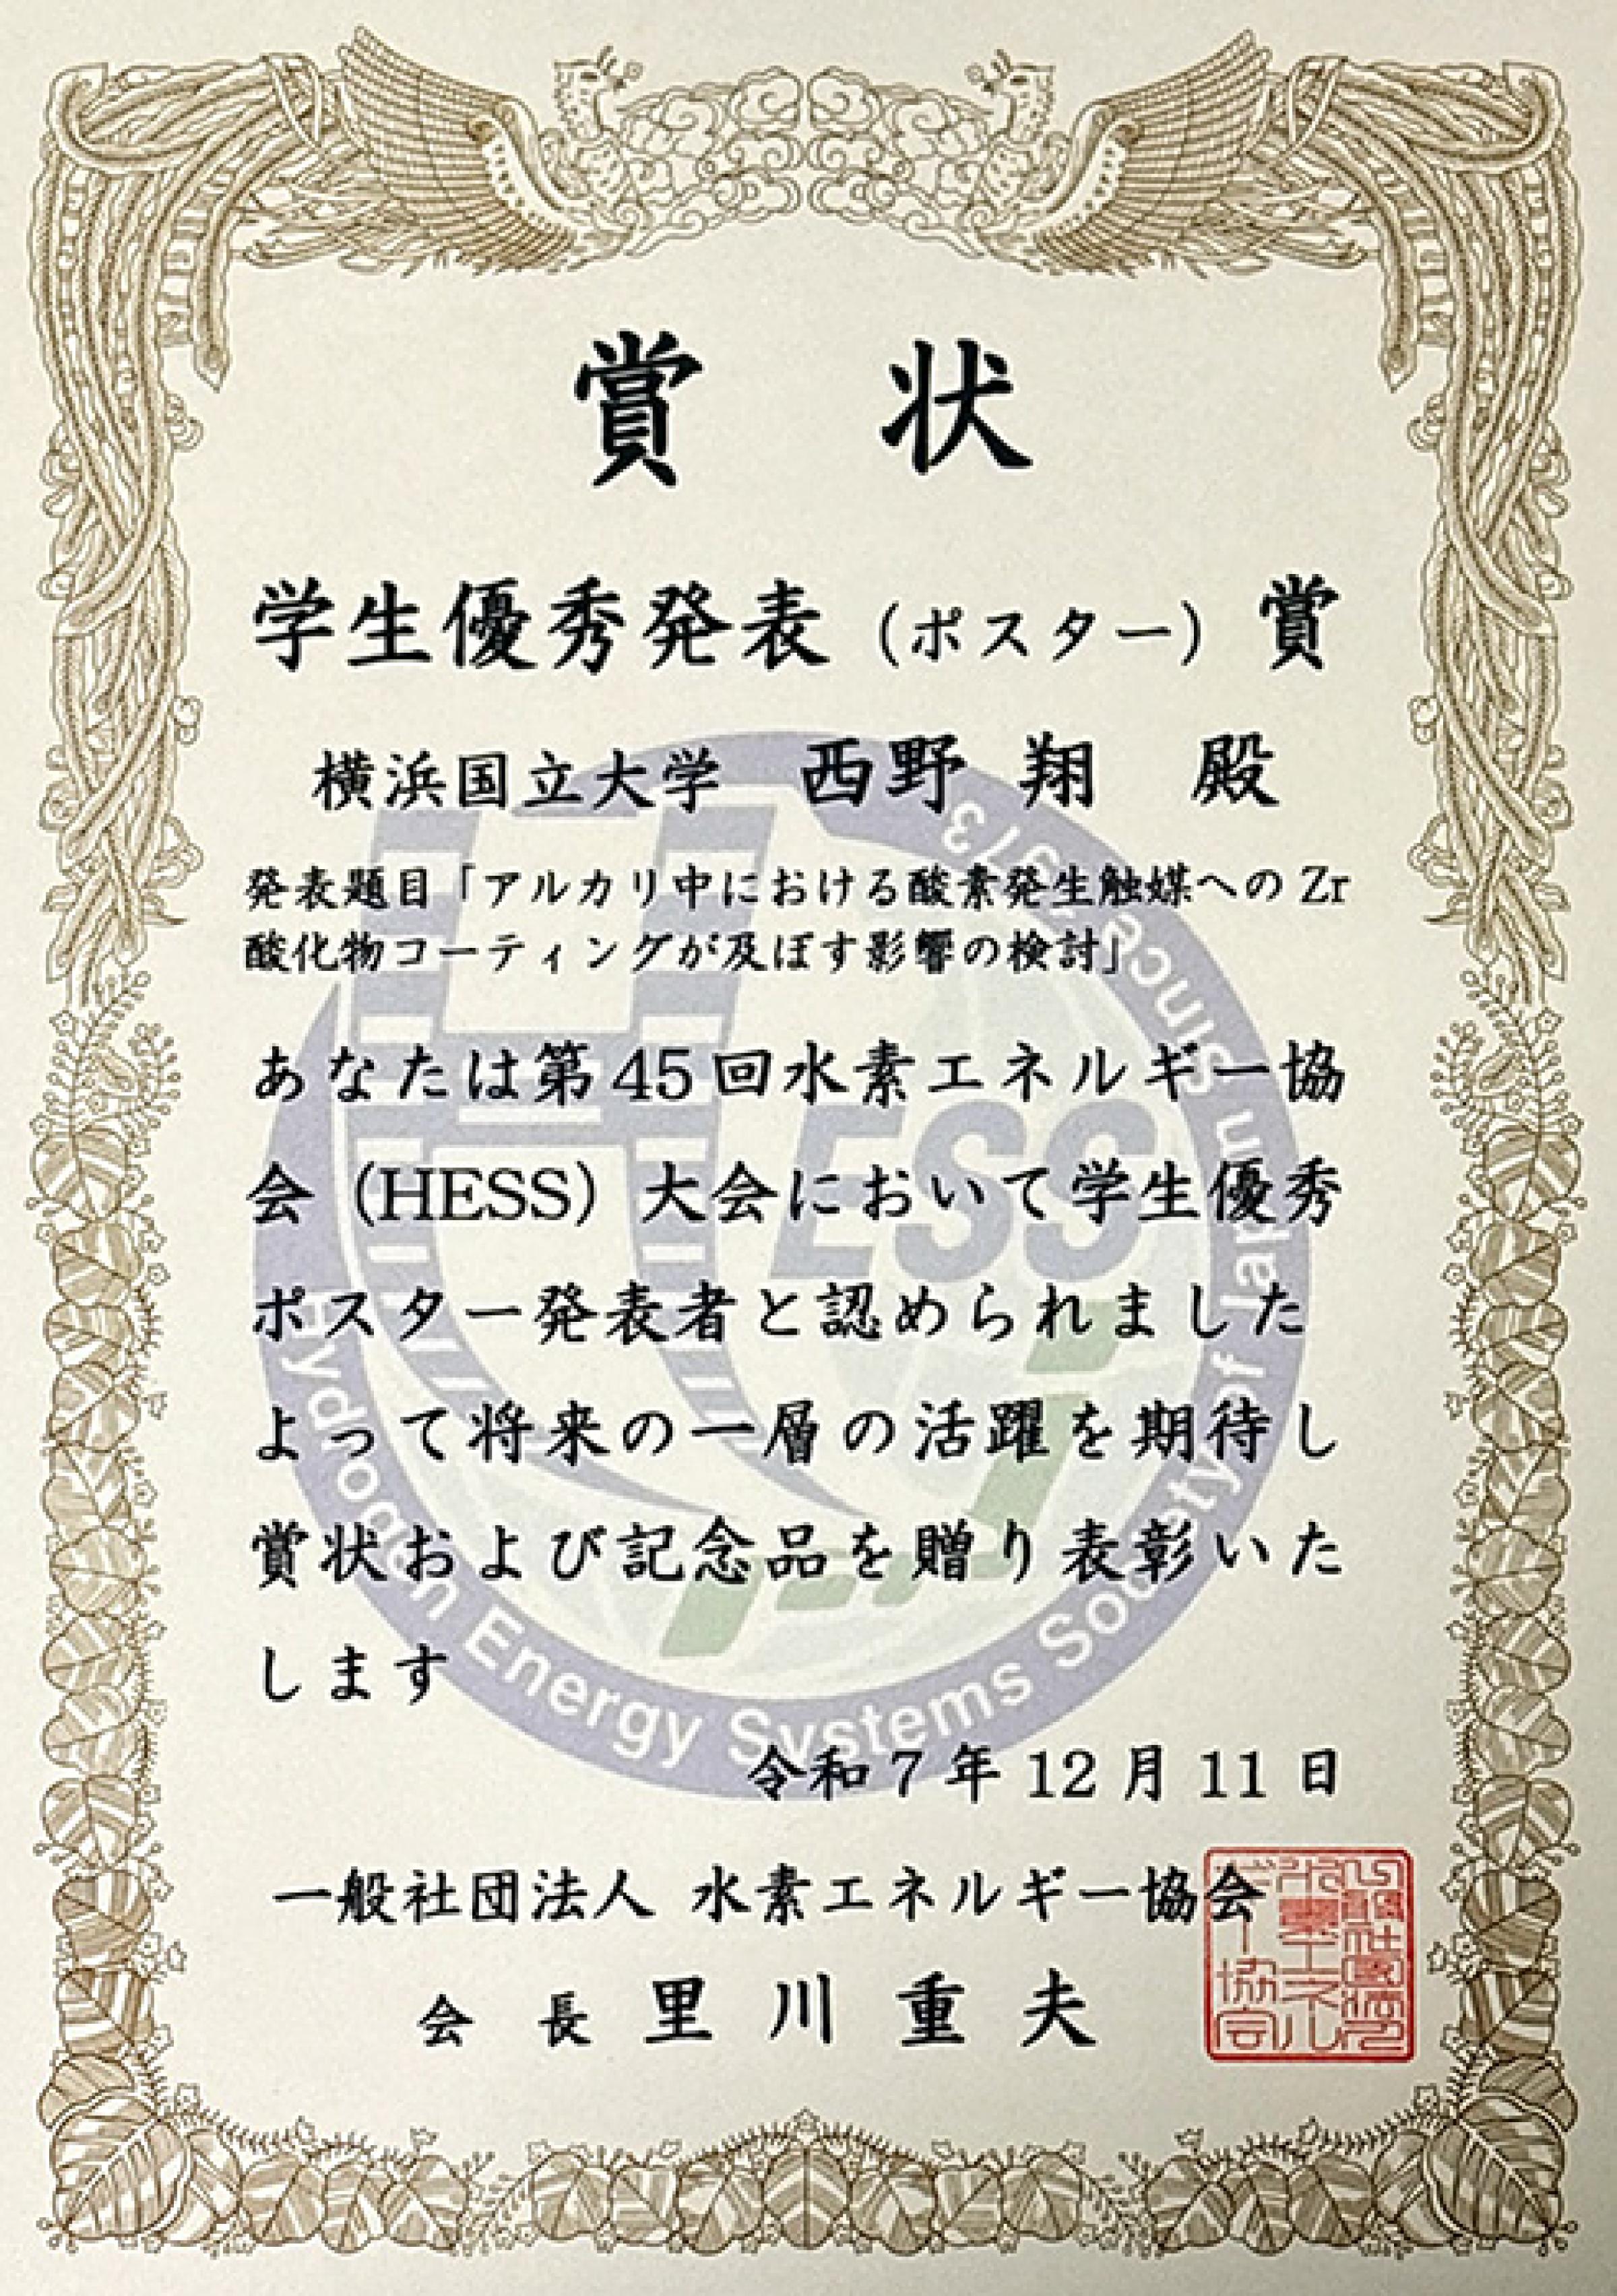 賞 状
学生優秀発表（ポスター）賞
横浜国立大学 西野 翔 殿
発表題目「アルカリ中における酸素発生触媒へのZr
酸化物コーティングが及ぼす影響の検討」
あなたは第45回水素エネルギー協
会（HESS）大会において学生優秀
ポスター発表者と認められました
よって将来の一層の活躍を期待し
賞状および記念品を贈り表彰いた
します
令和7年12月11日
一般社団法人 水素エネルギー協会
会 長 里 川 重 夫
HESS
Hydrogen Energy Systems Society of Japan Since 1973